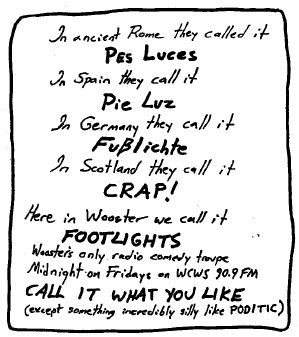 In ancient Rome they called it
PES LUCES
In Spain they call it
PIE LUZ
In Germany they call it
FUßLICHTE
In Scotland they call it
CRAP!
Here in Wooster we call it
FOOTLIGHTS
Wooster's only radio comedy troupe
Midnight on Fridays on WCWS 90.9 FM
CALL IT WHAT YOU LIKE
(except something incredibly silly like PODITIC)